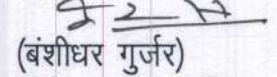 (बंशीधर गुर्जर)